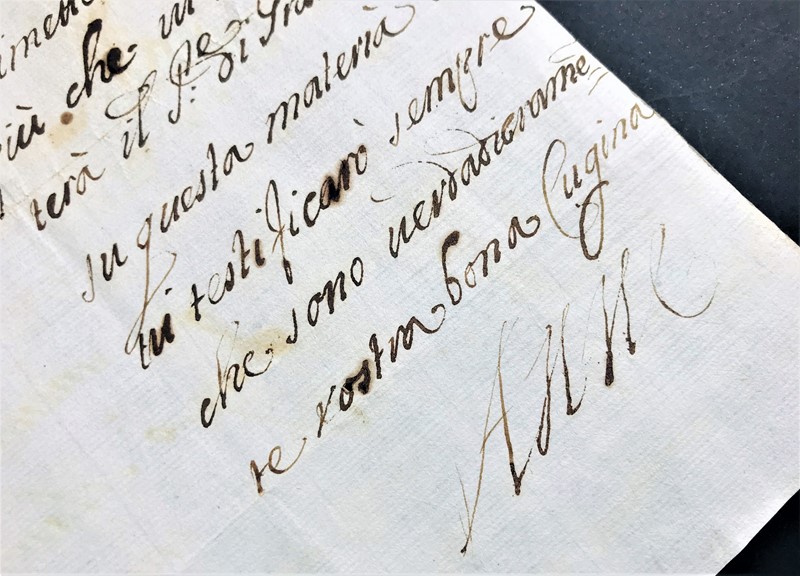 che
terà il Pre: di
su questa materia
vi testificarò sempre
che sono verdadierame=
te vostra bona Cugina
Anne